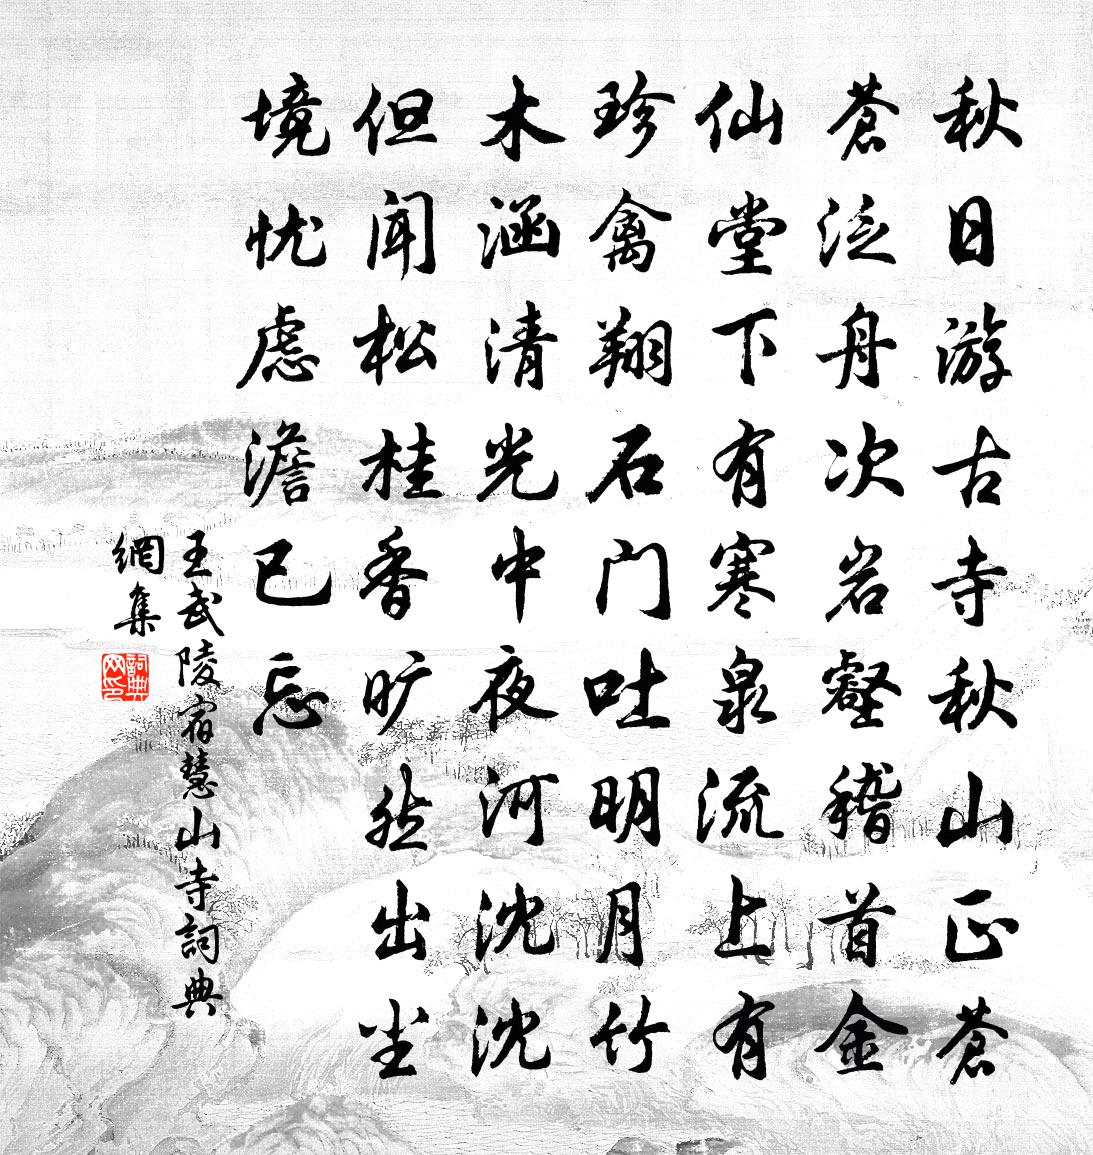 秋日游古寺秋山正苍
苍泛舟次岩壑稽首金
仙堂下有寒泉流上有
珍禽翔石门吐明月竹
木涵清光中夜河沈沈
但闻松桂香旷然出尘
境忧虑澹已忘
王武陵宿慧山寺詞典
網集
詞典网印